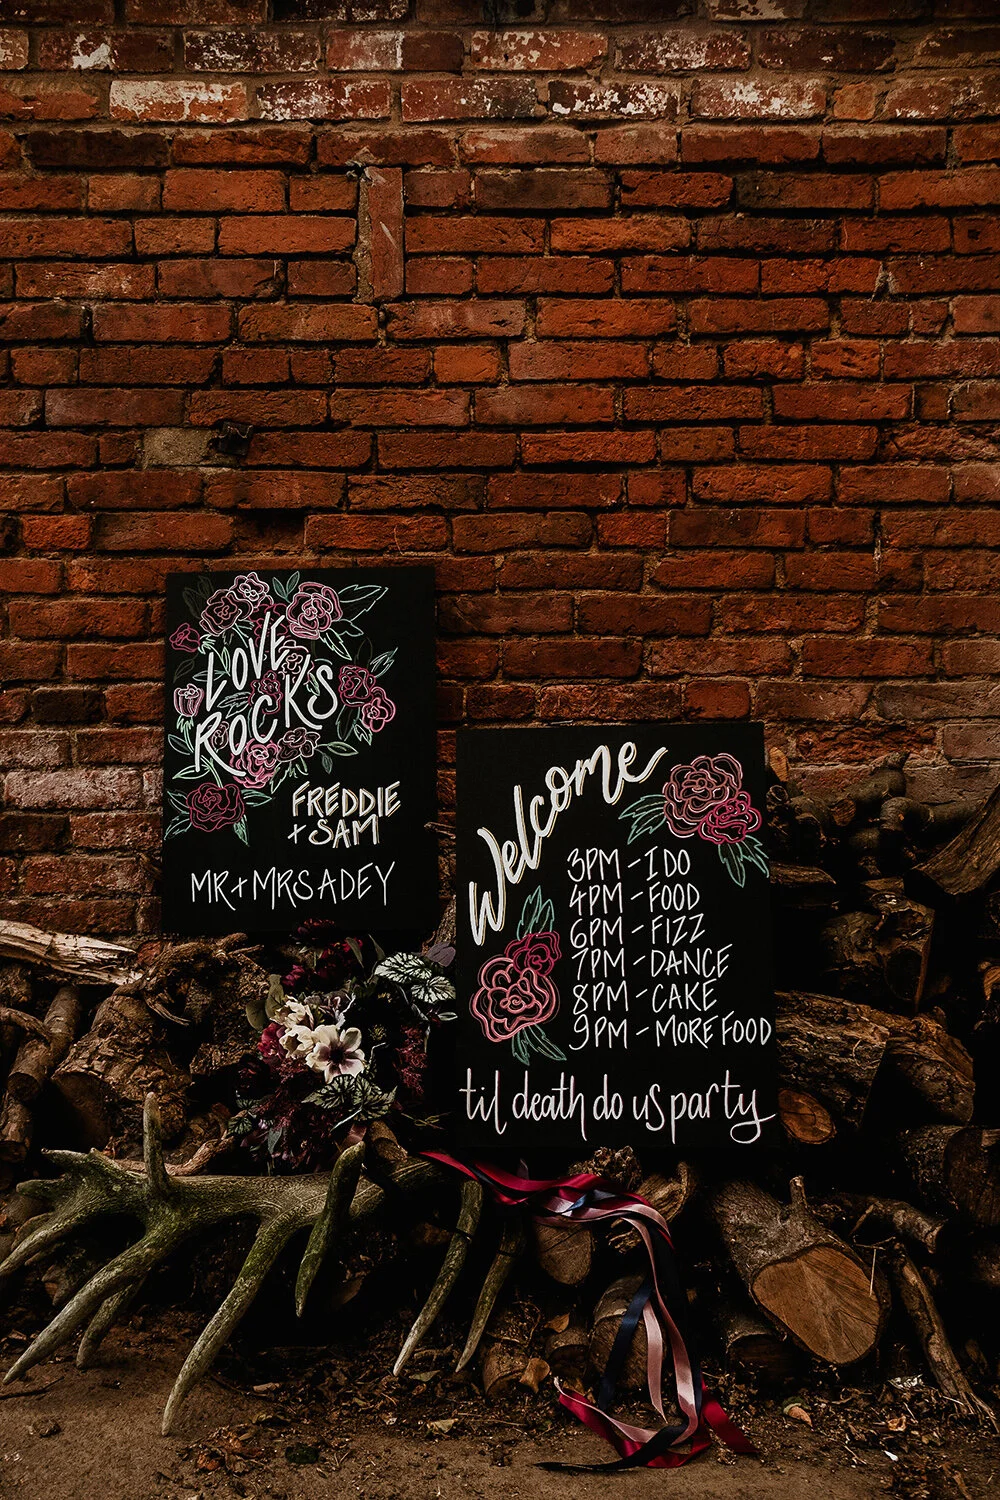 LOVE
ROCKS
FREDDIE
+ SAM
MR + MRS ADEY
Welcome
3PM - I DO
4PM - FOOD
6PM - FIZZ
7PM - DANCE
8PM - CAKE
9PM - MORE FOOD
til death do us party